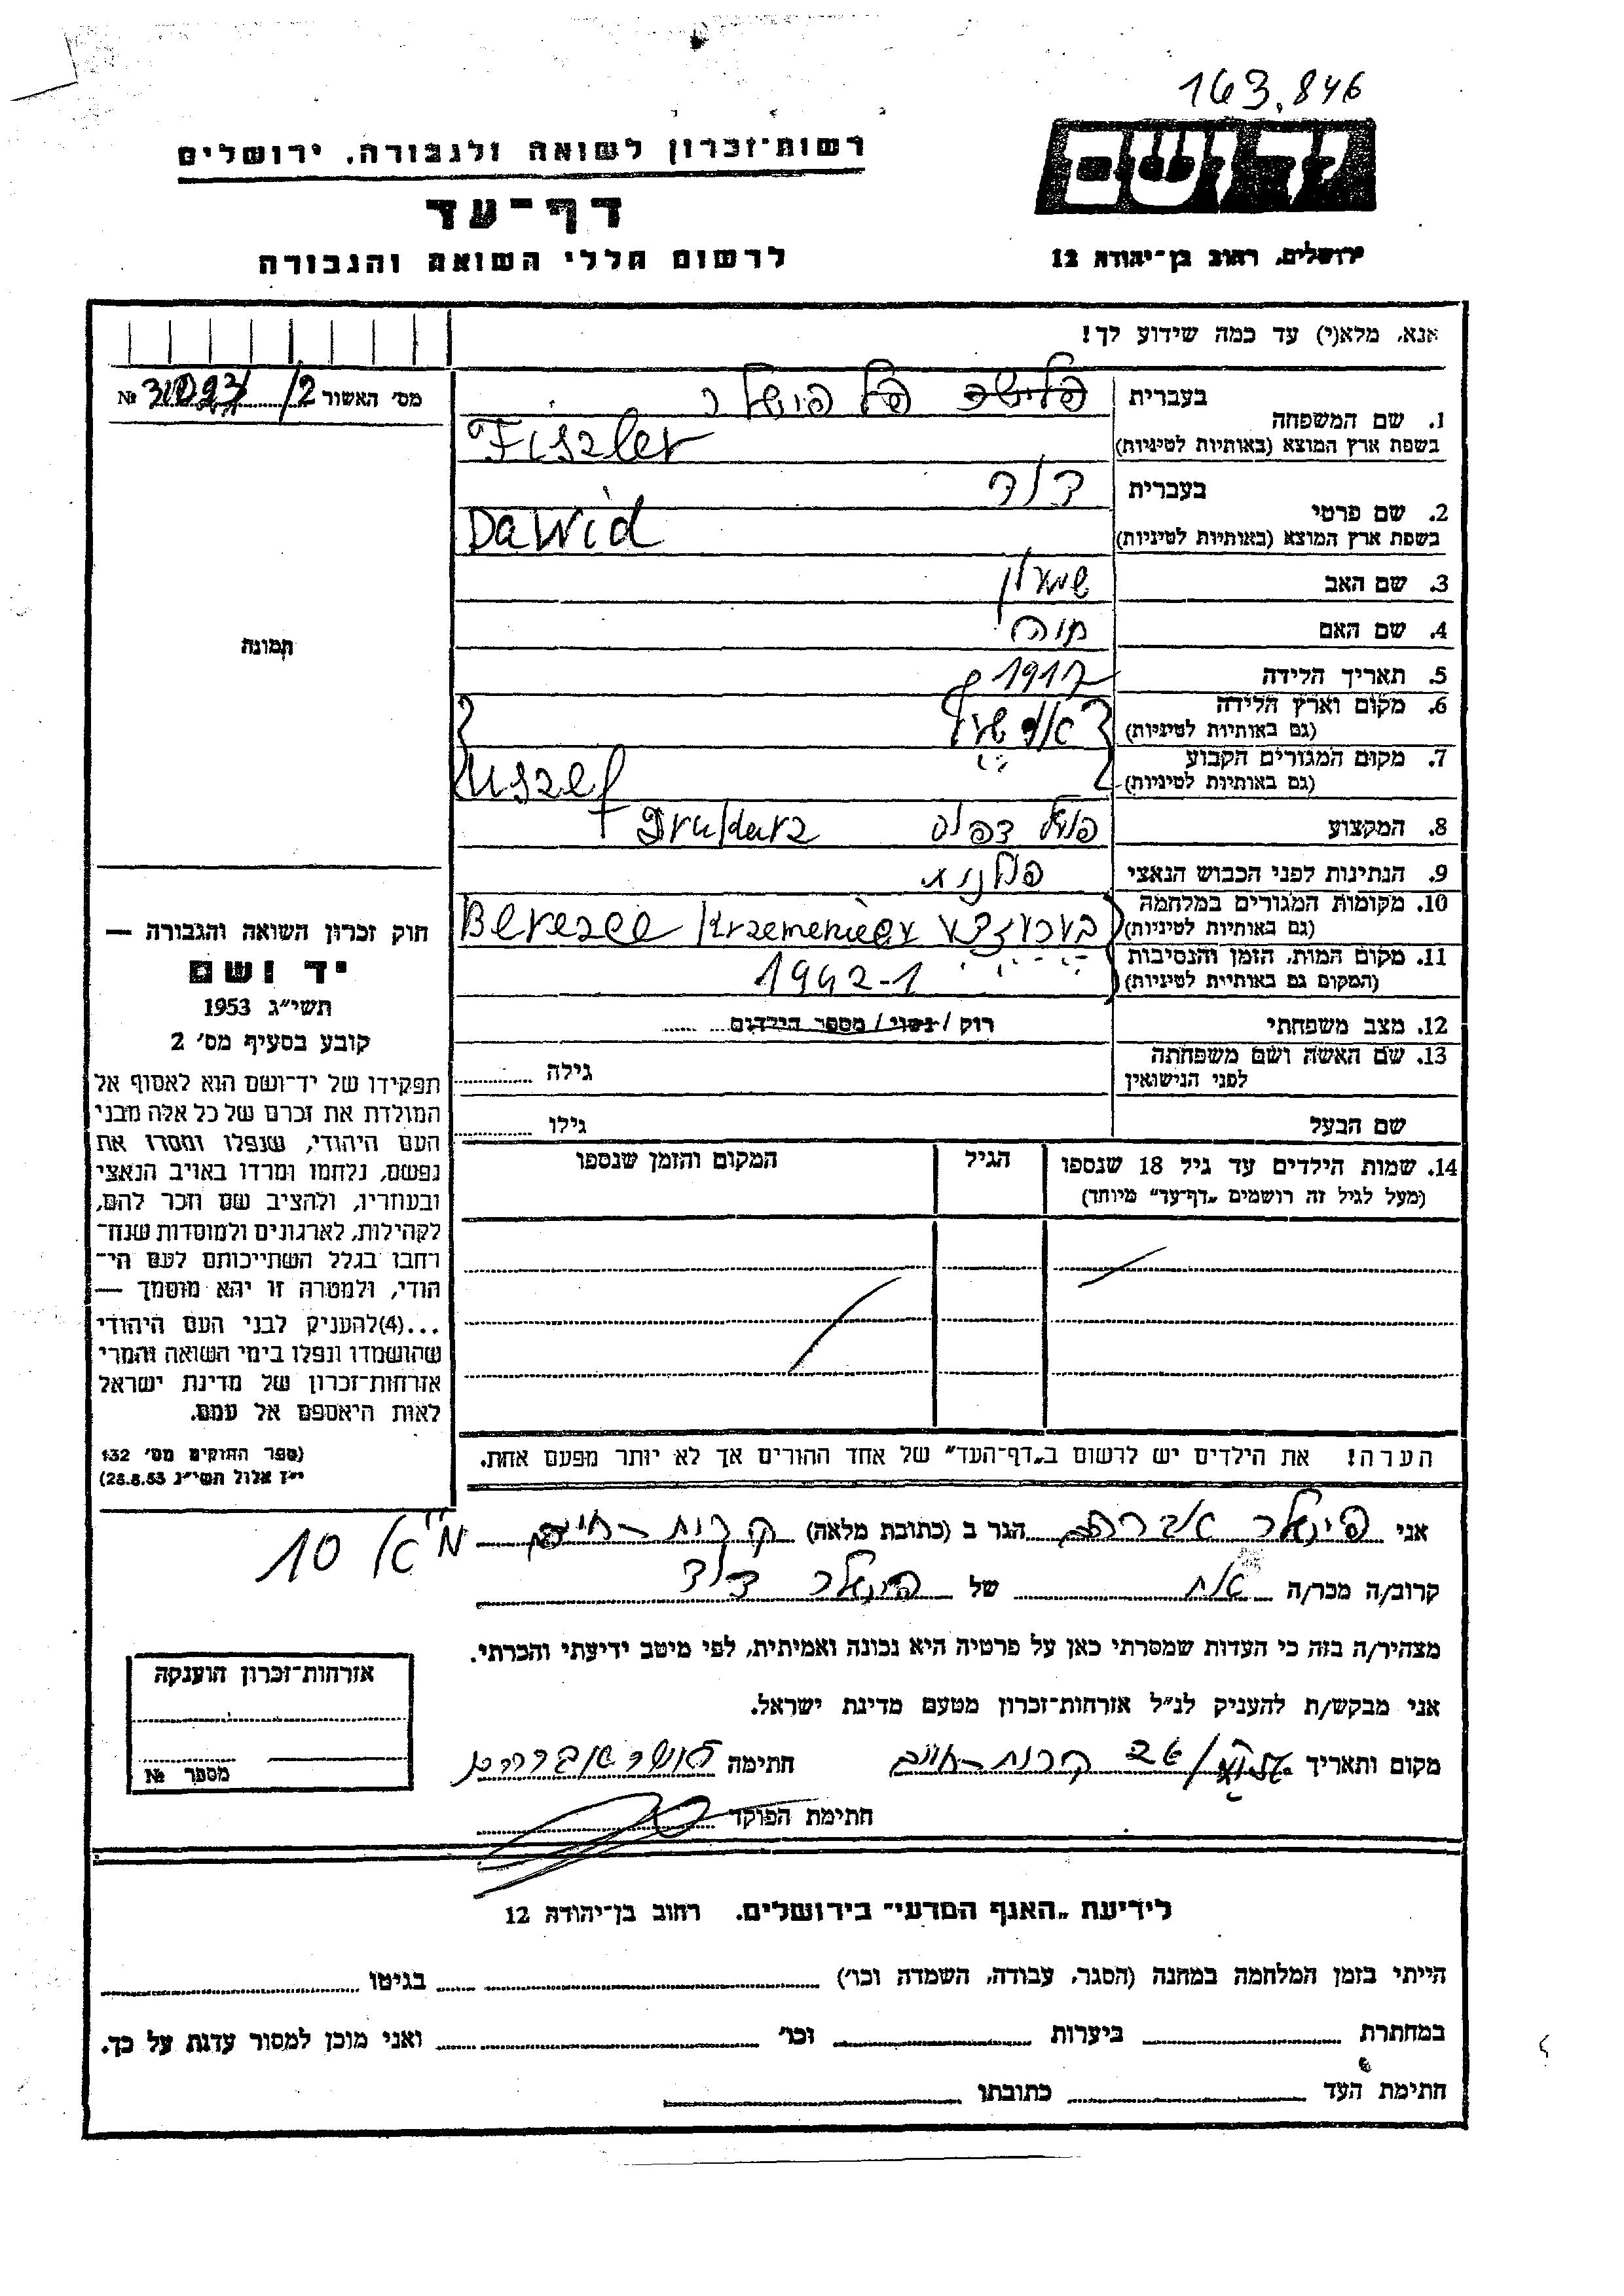 163,846
יד ושם
ירושלים, רחוב בן־יהודה 12
רשות־זכרון לשואה ולגבורה, ירושלים
דף־עד
לרשום חללי השואה והגבורה
אנא, מלא(י) עד כמה שידוע לך!
מס' האשור №
1. שם המשפחה
בעברית
בשפת ארץ המוצא (באותיות לטיניות) Fiszler
2. שם פרטי
בעברית דוד
בשפת ארץ המוצא (באותיות לטיניות) Dawid
3. שם האב שמעון
4. שם האם
5. תאריך הלידה 1917
6. מקום וארץ הלידה
(גם באותיות לטיניות)
7. מקום המגורים הקבוע
(גם באותיות לטיניות)
8. המקצוע פועל דפוס Drukarz
9. הנתינות לפני הכבוש הנאצי
10. מקומות המגורים במלחמה
(גם באותיות לטיניות)
11. מקום המות, הזמן והנסיבות 1942
(המקום גם באותיות לטיניות)
12. מצב משפחתי רוק / נשוי / מספר הילדים
13. שם האשה ושם משפחתה
לפני הנישואין גילה
שם הבעל גילו
14. שמות הילדים עד גיל 18 שנספו הגיל המקום והזמן שנספו
(מעל לגיל זה רושמים „דף־עד" מיוחד)
תמונה
חוק זכרון השואה והגבורה —
יד ושם
תשי"ג 1953
קובע בסעיף מס' 2
תפקידו של יד־ושם הוא לאסוף אל
המולדת את זכרם של כל אלה מבני
העם היהודי, שנפלו ומסרו את
נפשם, נלחמו ומרדו באויב הנאצי
ובעוזריו, ולהציב שם וזכר להם,
לקהילות, לארגונים ולמוסדות שנח־
רבו בגלל השתייכותם לעם הי־
הודי, ולמטרה זו יהא מוסמך —
...(4)להעניק לבני העם היהודי
שהושמדו ונפלו בימי השואה והמרי
אזרחות־זכרון של מדינת ישראל
לאות היאספם אל עמם.
(ספר החוקים מס' 132
י"ז אלול תשי"ג 28.8.53)
הערה! את הילדים יש לרשום ב„דף־העד" של אחד ההורים אך לא יותר מפעם אחת.
אני פישלר אברהם הגר ב (כתובת מלאה) קרית-חיים
קרוב/ה מכר/ה אח של פישלר דוד
מצהיר/ה בזה כי העדות שמסרתי כאן על פרטיה היא נכונה ואמיתית, לפי מיטב ידיעתי והכרתי.
אני מבקש/ת להעניק לנ"ל אזרחות־זכרון מטעם מדינת ישראל.
מקום ותאריך קרית-חיים חתימה
חתימת הפוקד
אזרחות־זכרון הוענקה
מספר №
לידיעת „האגף המדעי" בירושלים, רחוב בן־יהודה 12
הייתי בזמן המלחמה במחנה (הסגר, עבודה, השמדה וכו') בגיטו
במחתרת ביערות וכו' ואני מוכן למסור עדות על כך.
חתימת העד כתובתו